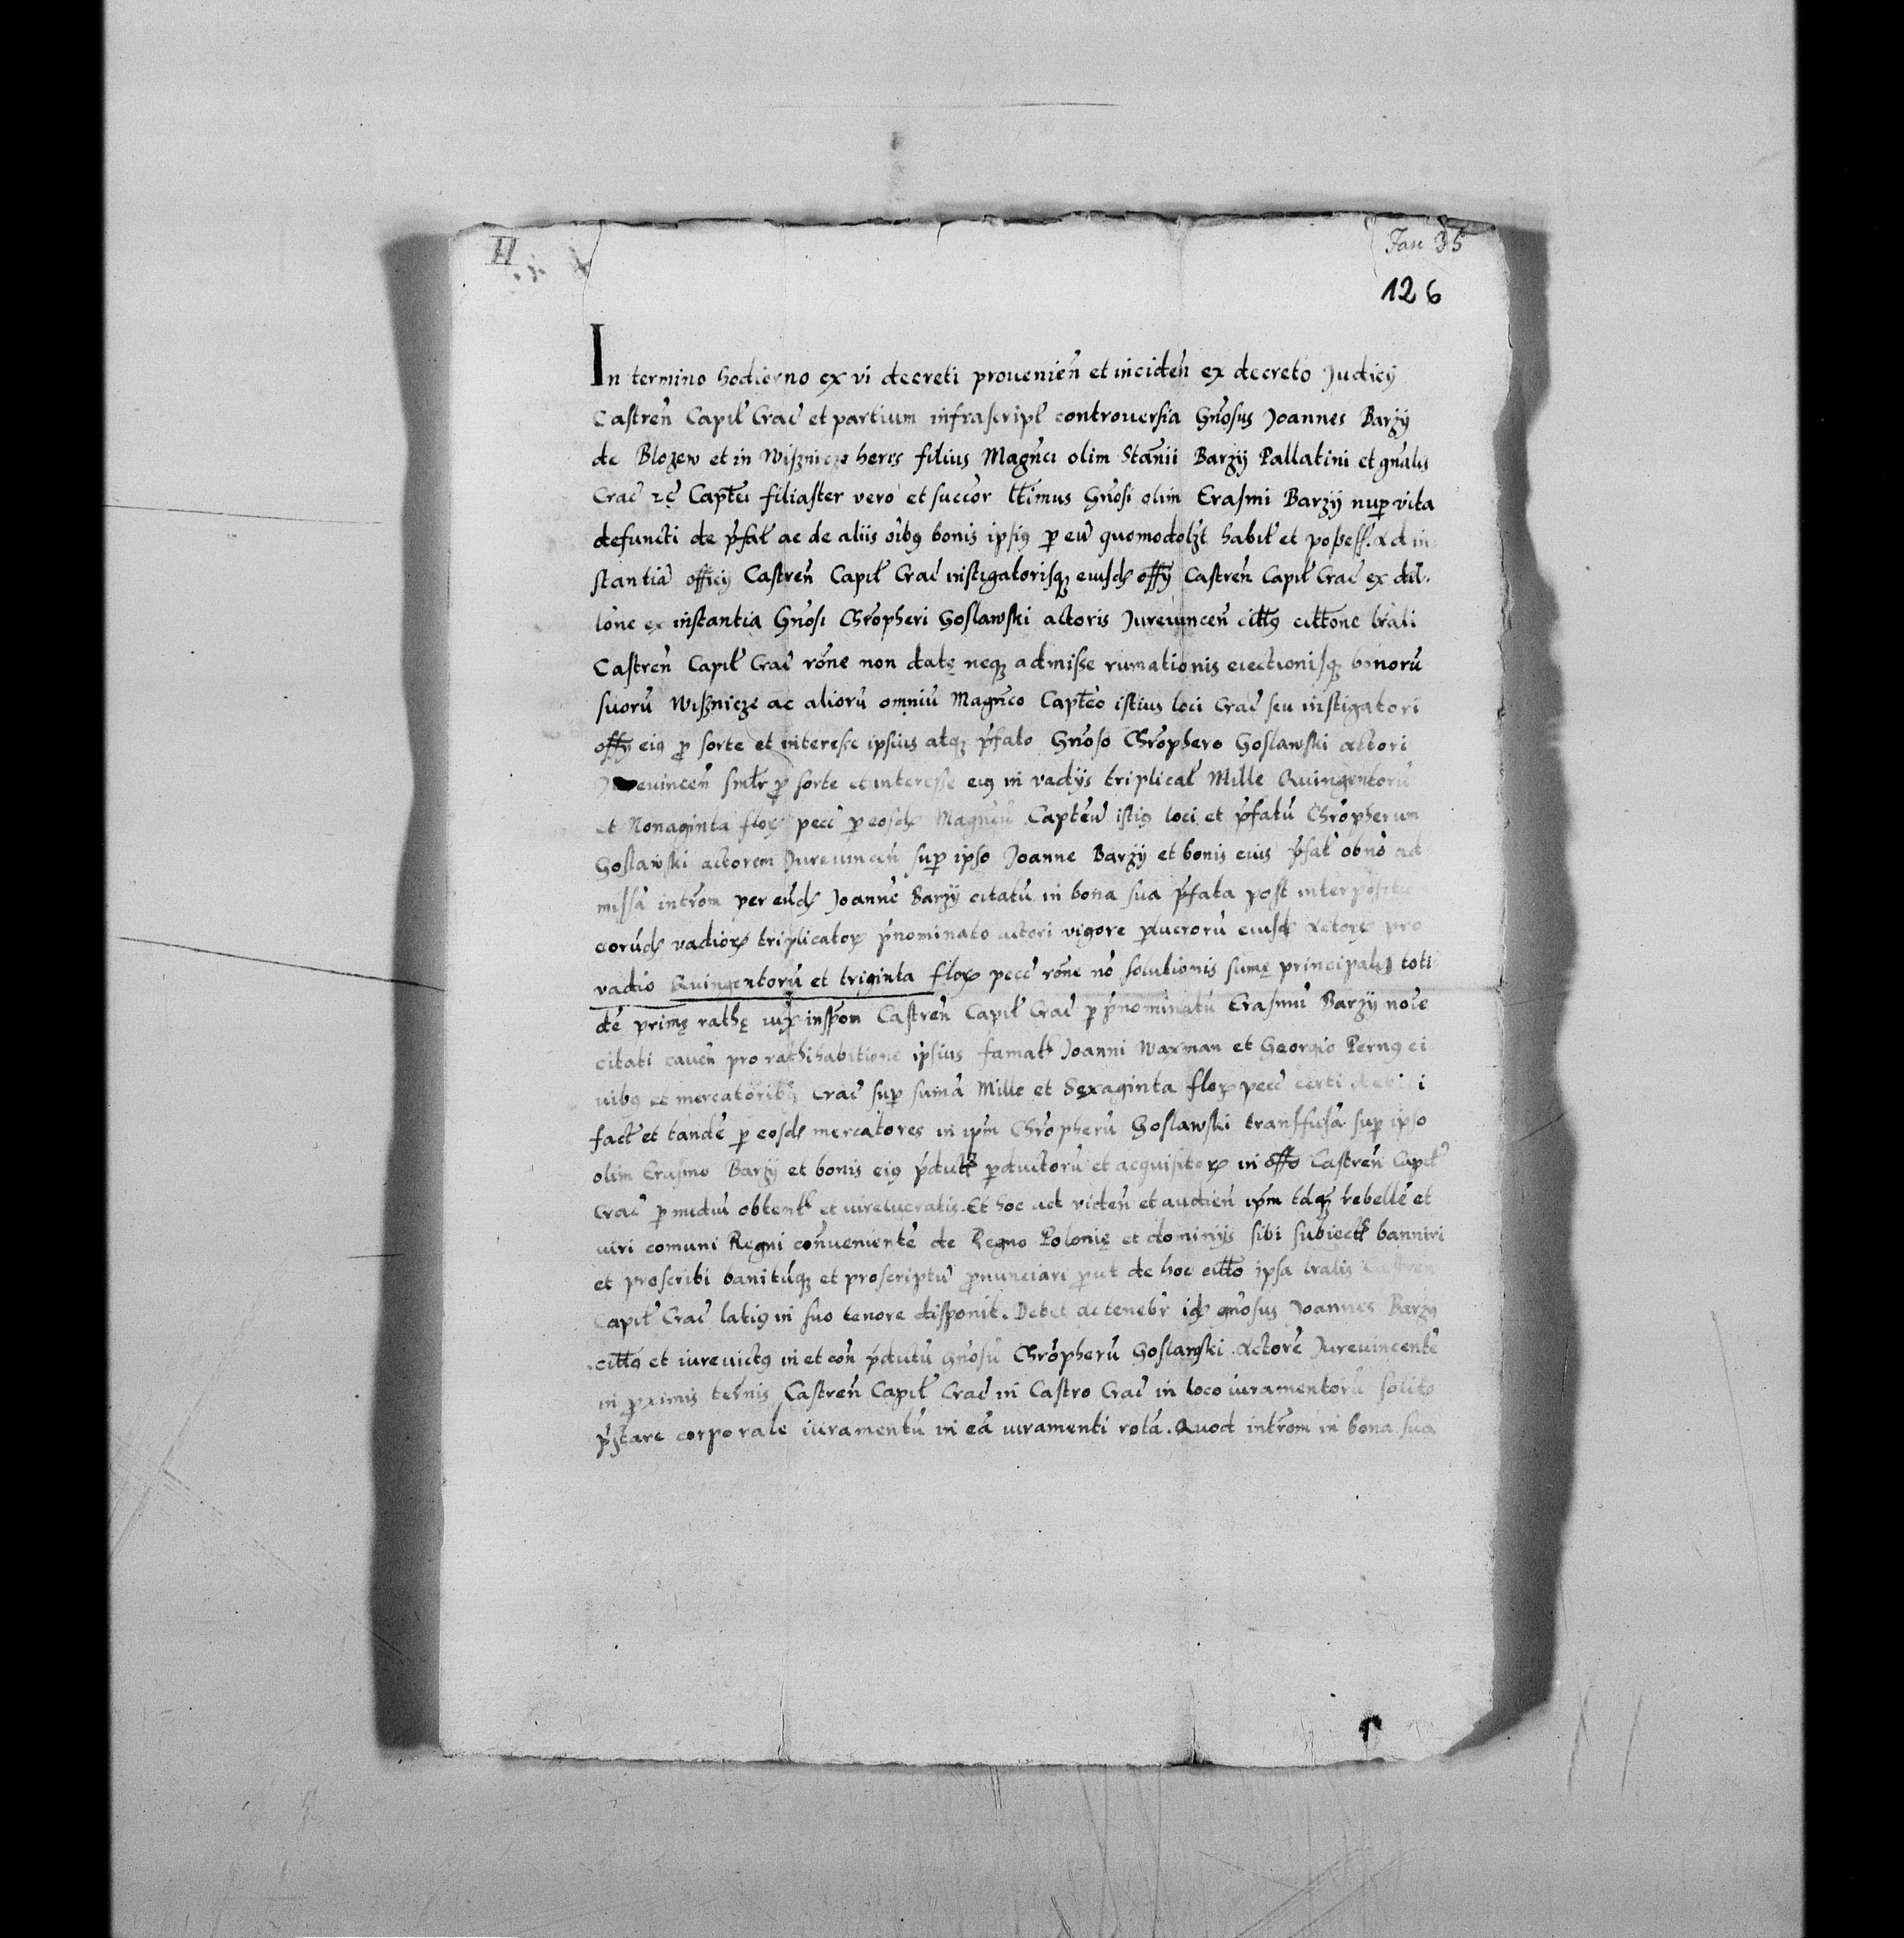 II
Fasc 35
126
In termino hodierno ex vi decreti prouenień et incideń ex decreto Judicÿ
Castreń Capiŧ Crac̃ et partium infrascripŧ controuersia Gñosus Joannes Barzÿ
de Blozew et in Wisznicze heres filius Magñci olim Stañii Barzÿ Pallatini et gñalis
Crac̃ Capŧei filiaster vero et succor lŧimus Gñosi olim Erasmi Barzÿ nup vita
defuncti de p̃faŧ ac de aliis oibꝯ bonis ipsiꝯ p eũ quomodolꝫt habiŧ et posseß. Ad in-
stantiã officÿ Castreń Capiŧ Crac̃ instigatorisqꝫ eiusdꝫ offÿ Castreń Capiŧ Crac̃ ex
instantia Gñosi Chropheri Goslawski actoris Jureuinceń ciŧŧꝯ ciŧŧone lr̃ali
Castreń Capiŧ Crac̃ rõne non datę neqꝫ admisse rumationis eiectionisqꝫ bonorũ
suorũ Wisznicze ac aliorũ omniũ Magñco Capŧeo istius loci Crac̃ seu instigatori
offÿ eiꝯ p sorte et interesse ipsius atqꝫ p̃fato Gñoso Chrophero Goslawski actori
Jureuinceń smŧr p sorte et interesse eiꝯ in vadÿs triplicaŧ Mille Quingentorũ
et Nonaginta floꝝ pecc̃ p eosdꝫ Magñcũ Capŧeũ istiꝯ loci et p̃fatũ Chropherum
Goslawski actorem Jureuinceń sup ipso Joanne Barzÿ et bonis eius p̃faŧ obño ad
missã intrõm per eũdꝫ Joannẽ Barzÿ citatũ in bona sua p̃fata post
eorũdꝫ vadioꝝ triplicatoꝝ p̃nominato actori vigore plucrorũ eiusdꝫ Actoris pro
vadio Quingentorũ et triginta floꝝ pecc̃ rõne nõ solutionis sumę principalis toti
dẽ primę rathę inspõm Castreń Capiŧ Crac̃ p p̃nominatũ Erasmũ Barzÿ noĩe
citati caueń pro rathihabitione ipsius famaŧ Joanni Waxman et Georgio Pernꝯ ci
uibꝯ et mercatoribꝯ Crac̃ sup sumã Mille et Sexaginta floꝝ pecc̃ certi debiti
facŧ et tandẽ p eosdꝫ mercatores in ipm̃ Chropherũ Goslawski transfusã sup ipso
olim Erasmo Barzÿ et bonis eiꝯ p̃dicŧ pductorũ et acquisitoꝝ in offo Castreń Capiŧ
Crac̃ obtenŧ et iurelucratis. Et hoc ad videń et audień ipm̃ tãqꝫ rebellẽ et
iuri comuni Regni conũenientẽ de Regno Polonię et dominÿs sibi subiecŧ banniri
et proscribi banitũqꝫ et proscriptũ pnunciari put de hoc ciŧŧo ipsa lr̃alis Castreń
Capiŧ Crac̃ latiꝯ in suo tenore disponit. Debet ac tenebr̃ idꝫ gñosus Joannes Barzÿ
ciŧŧꝯ et iureuictꝯ in et con̄ p̃dictũ Gñosũ Chropherũ Goslawski Actorẽ Jureuincentẽ
in pximis terñis Castreń Capiŧ Crac̃ in Castro Crac̃ in loco iuramentorũ solito
p̃stare corporale iuramentũ in eã iuramenti rotã. Quod intrõm in bona sua